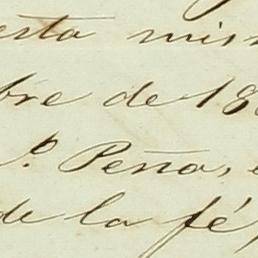 esta mis
bre de 18
º Peña,
de la fé,